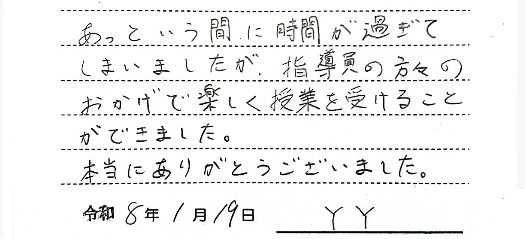 あっという間に時間が過ぎて
しまいましたが、指導員の方々の
おかげで楽しく授業を受けること
ができました。
本当にありがとうございました。
令和 8年 1月 19日 YY